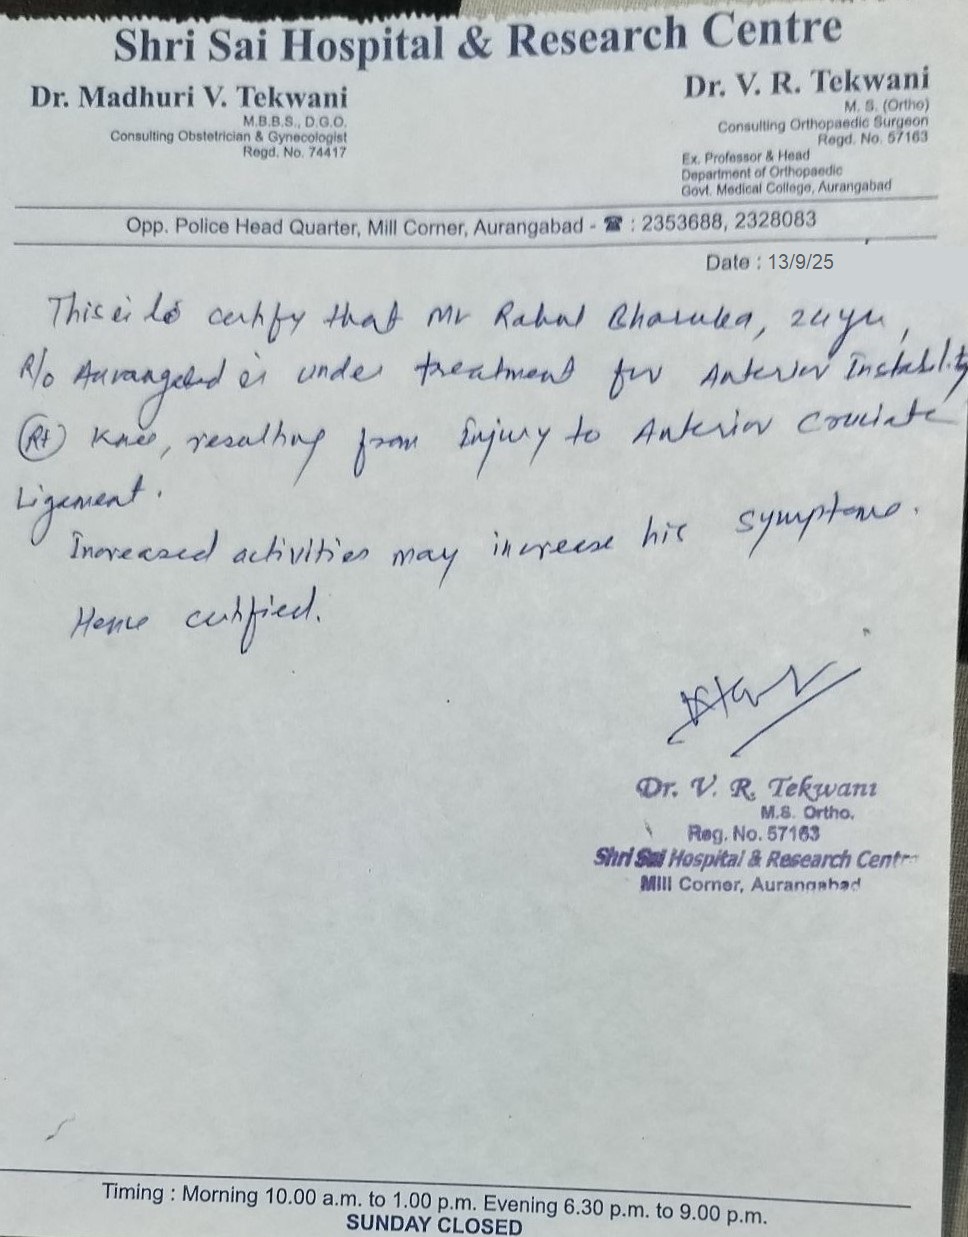 Shri Sai Hospital & Research Centre
Dr. Madhuri V. Tekwani
M.B.B.S., D.G.O.
Consulting Obstetrician & Gynecologist
Regd. No. 74417
Dr. V. R. Tekwani
M. S. (Ortho)
Consulting Orthopaedic Surgeon
Regd. No. 57163
Ex. Professor & Head
Department of Orthopaedic
Govt. Medical College, Aurangabad
Opp. Police Head Quarter, Mill Corner, Aurangabad - ☎ : 2353688, 2328083
Date : 13/9/25
This is to certify that Mr Rahul Bharuka, 24 yrs,
R/o Aurangabad is under treatment for Anterior Instability
(Rt) Knee, resulting from Injury to Anterior Cruciate
Ligament.
Increased activities may increase his symptoms.
Hence certified.
Dr. V. R. Tekwani
M.S. Ortho.
Reg. No. 57163
Shri Sai Hospital & Research Centre
Mill Corner, Aurangabad
Timing : Morning 10.00 a.m. to 1.00 p.m. Evening 6.30 p.m. to 9.00 p.m.
SUNDAY CLOSED